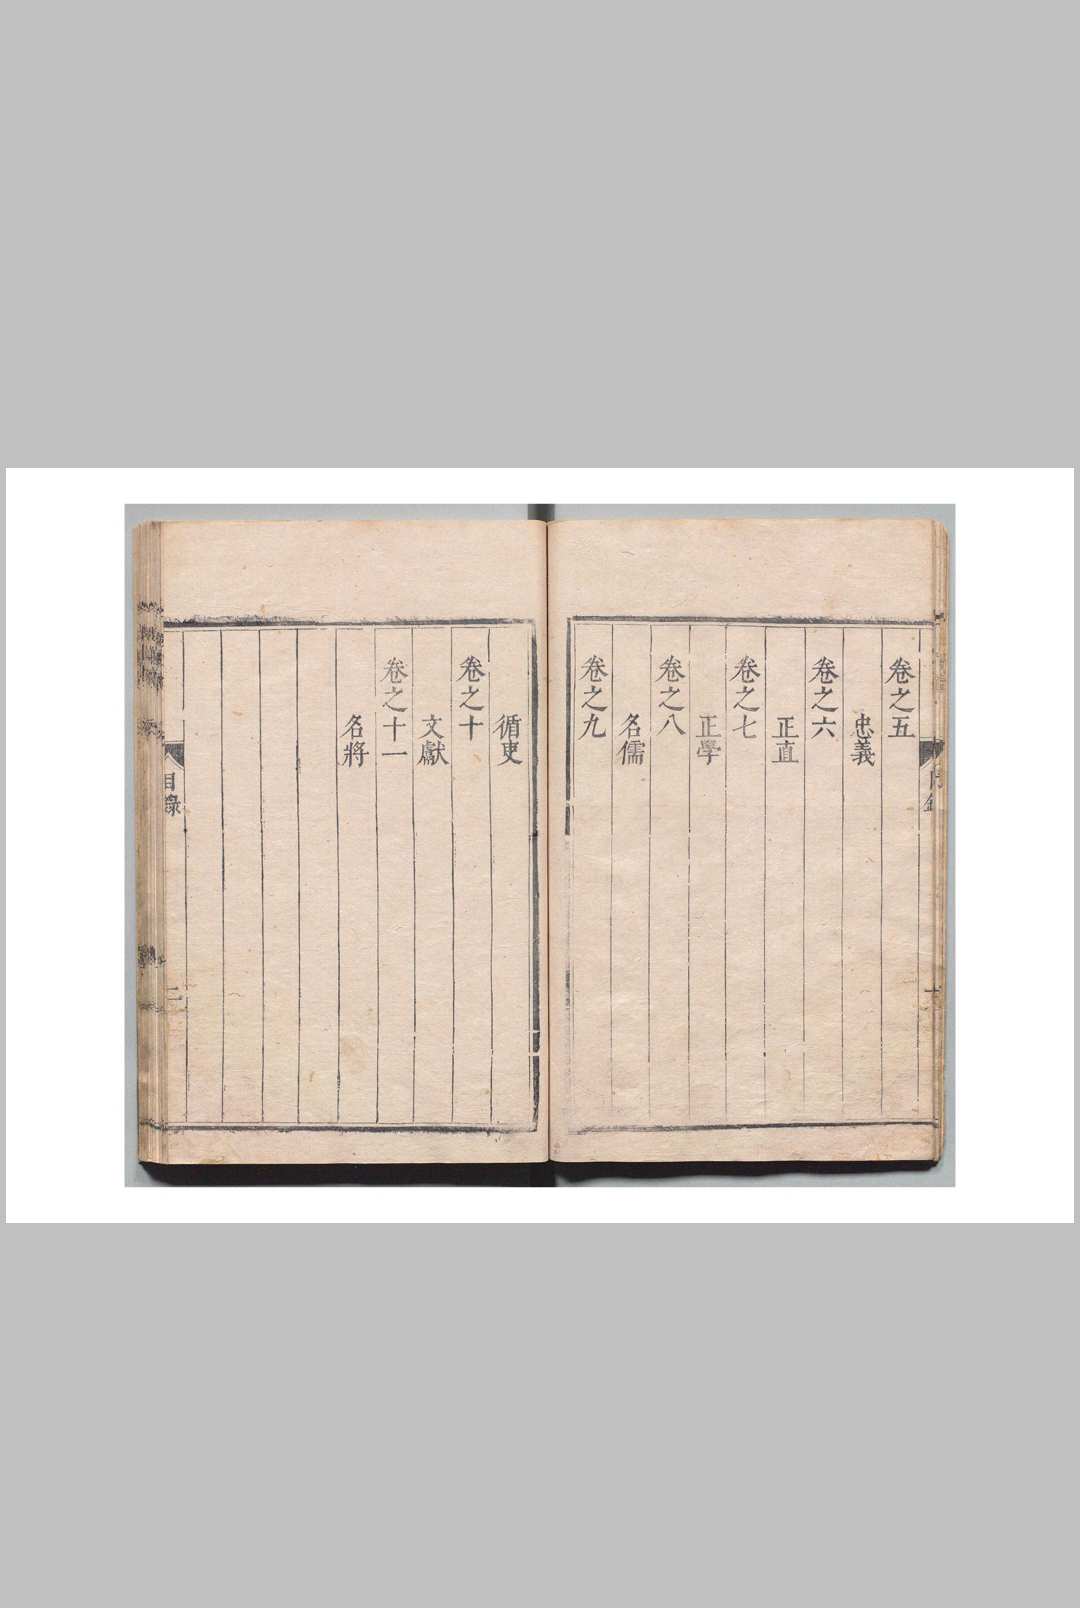 卷之五
忠義
卷之六
正直
卷之七
正學
卷之八
名儒
卷之九
循吏
卷之十
文獻
卷之十一
名將
目錄